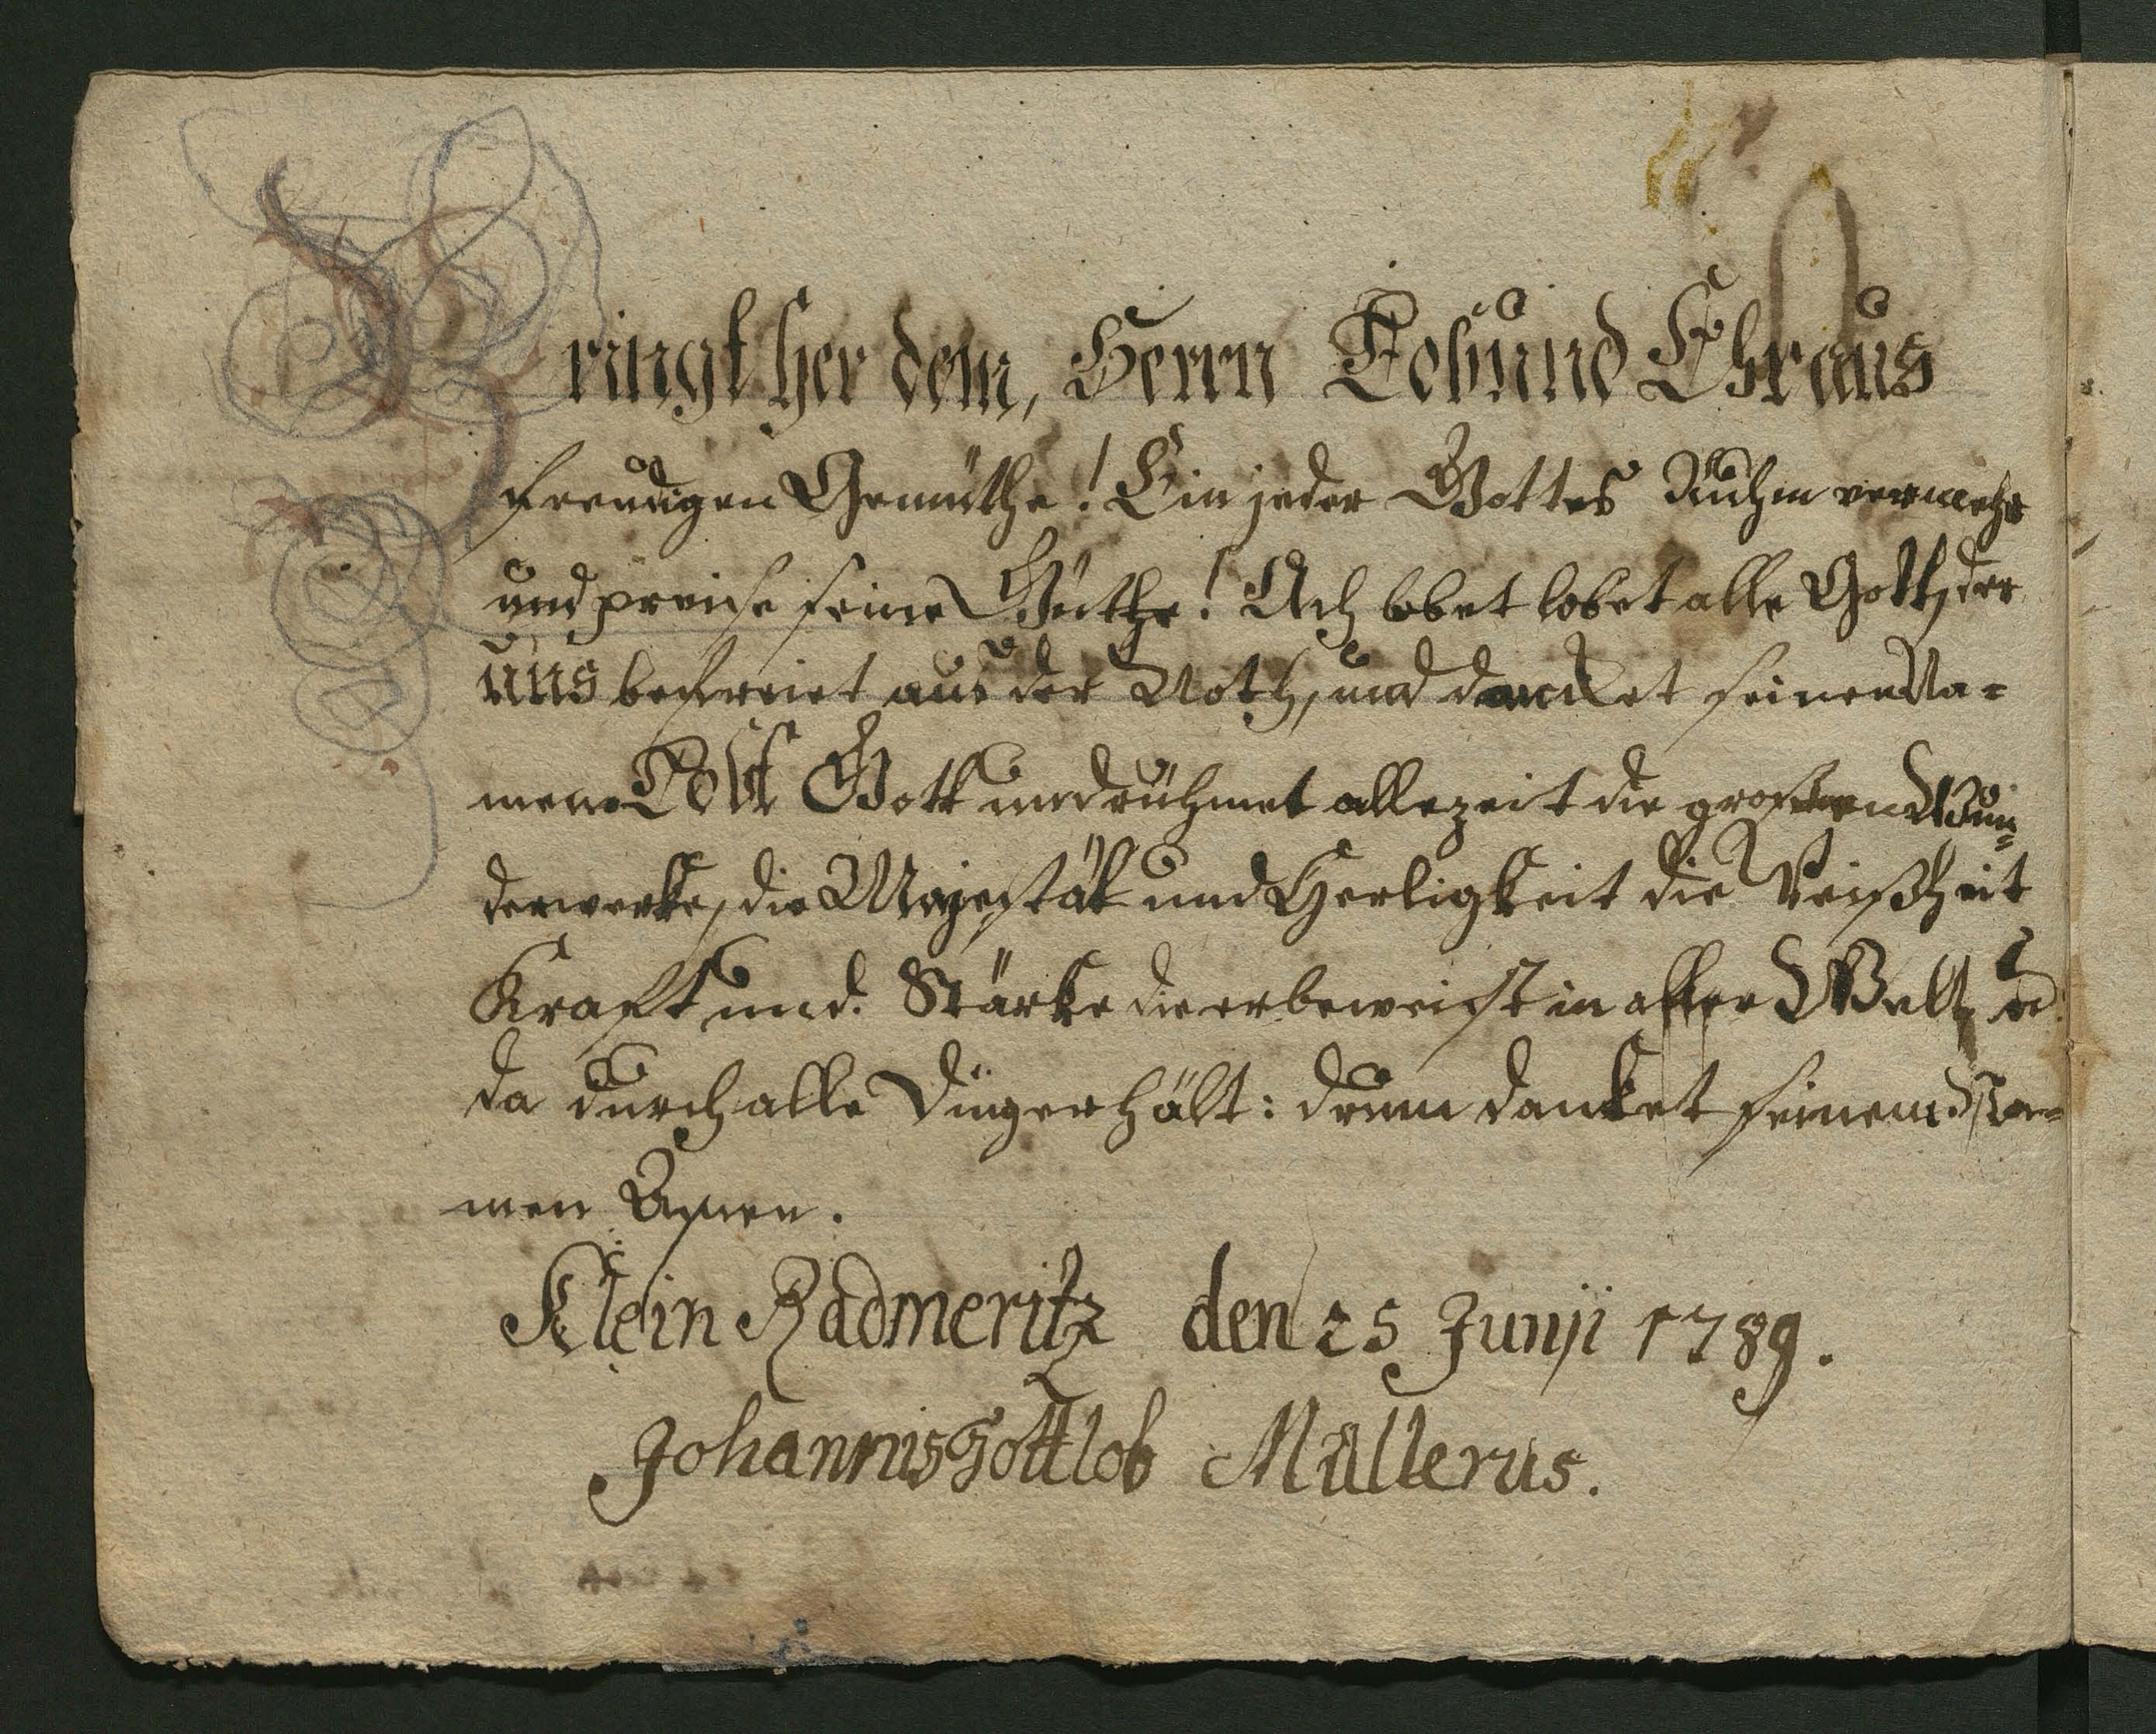 Bringt her dem, Herrn Lob und Ehr aus
freudigen Gemüthe! Ein jeder Gottes Ruhm vermehr
und preise seine Güthe! Ach lobet lobet alle Gott, der
uns befreiet aus der Noth, und dancket seinen Na-
men. Lobt Gott und rühmet allezeit die großen Wun-
derwerke, die Majestät und Herligkeit die Weißheit
Kraft und. Stärke die er beweist in aller Welt,
da durch alle Dinge erhält: drum danket seinem Na-
men Amen.
Klein Radmeritz den 25 Junji 1789.
Johannis Gottlob Müllerus.